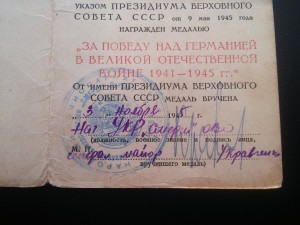 УКАЗОМ ПРЕЗИДИУМА ВЕРХОВНОГО
СОВЕТА СССР от 9 мая 1945 года
НАГРАЖДЕН МЕДАЛЬЮ
„ЗА ПОБЕДУ НАД ГЕРМАНИЕЙ
В ВЕЛИКОЙ ОТЕЧЕСТВЕННОЙ
ВОЙНЕ 1941—1945 гг."
От имени ПРЕЗИДИУМА ВЕРХОВНОГО
СОВЕТА СССР МЕДАЛЬ ВРУЧЕНА
„3" ноября 1945 г.
Нач УКР
(должность, воинское звание — подпись лица,
М. П.
генерал майор
вручившего медаль)